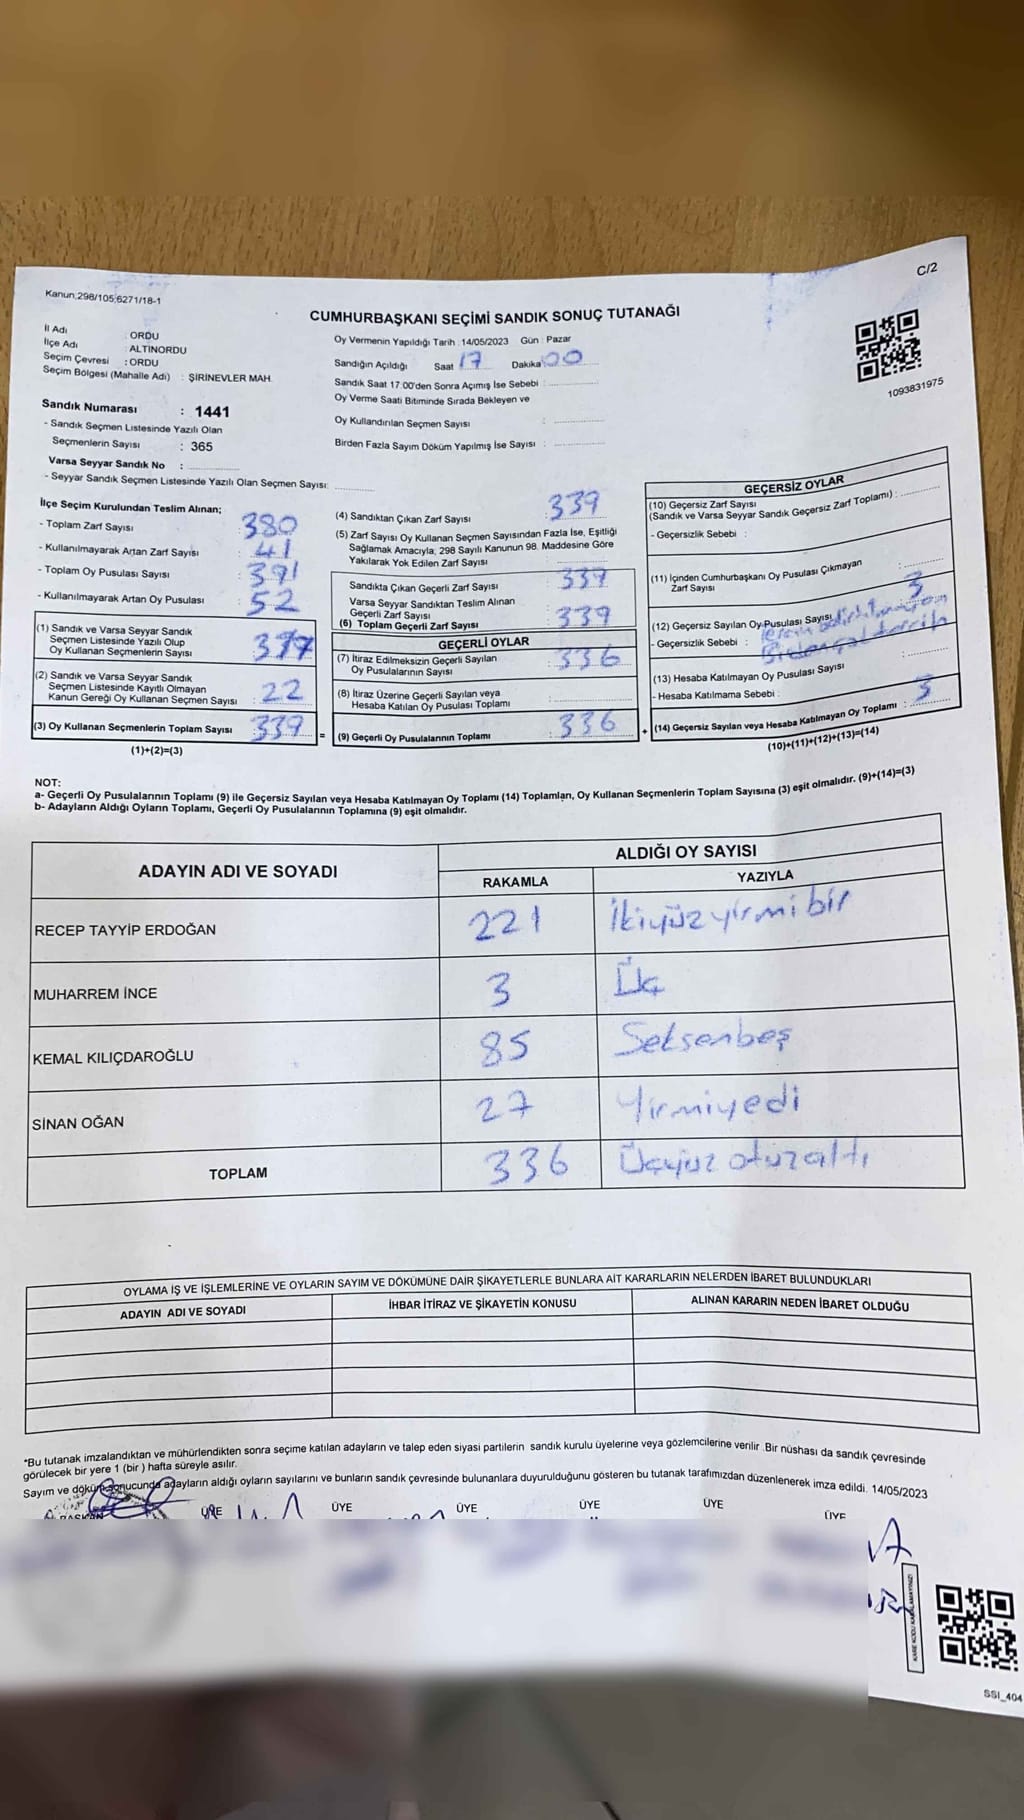 Kanun,298/105,6271/18-1
C/2
CUMHURBAŞKANI SEÇİMİ SANDIK SONUÇ TUTANAĞI
İl Adı : ORDU
İlçe Adı : ALTINORDU
Seçim Çevresi : ORDU
Seçim Bölgesi (Mahalle Adı) : ŞİRİNEVLER MAH.
Oy Vermenin Yapıldığı Tarih : 14/05/2023 Gün : Pazar
Sandığın Açıldığı Saat 17 Dakika 00
Sandık Saat 17:00'den Sonra Açımış İse Sebebi :
Oy Verme Saati Bitiminde Sırada Bekleyen ve
Oy Kullandırılan Seçmen Sayısı :
Birden Fazla Sayım Döküm Yapılmış İse Sayısı :
1093831975
Sandık Numarası : 1441
- Sandık Seçmen Listesinde Yazılı Olan
Seçmenlerin Sayısı : 365
Varsa Seyyar Sandık No :
- Seyyar Sandık Seçmen Listesinde Yazılı Olan Seçmen Sayısı:
İlçe Seçim Kurulundan Teslim Alınan;
- Toplam Zarf Sayısı : 380
- Kullanılmayarak Artan Zarf Sayısı : 41
- Toplam Oy Pusulası Sayısı : 391
- Kullanılmayarak Artan Oy Pusulası : 52
(1) Sandık ve Varsa Seyyar Sandık
Seçmen Listesinde Yazılı Olup
Oy Kullanan Seçmenlerin Sayısı
(2) Sandık ve Varsa Seyyar Sandık
Seçmen Listesinde Kayıtlı Olmayan
Kanun Gereği Oy Kullanan Seçmen Sayısı : 22
(3) Oy Kullanan Seçmenlerin Toplam Sayısı : 339
(1)+(2)=(3)
(4) Sandıktan Çıkan Zarf Sayısı : 339
(5) Zarf Sayısı Oy Kullanan Seçmen Sayısından Fazla İse, Eşitliği
Sağlamak Amacıyla, 298 Sayılı Kanunun 98. Maddesine Göre
Yakılarak Yok Edilen Zarf Sayısı :
Sandıkta Çıkan Geçerli Zarf Sayısı : 339
Varsa Seyyar Sandıktan Teslim Alınan
Geçerli Zarf Sayısı :
(6) Toplam Geçerli Zarf Sayısı : 339
GEÇERLİ OYLAR
(7) İtiraz Edilmeksizin Geçerli Sayılan
Oy Pusulalarının Sayısı : 336
(8) İtiraz Üzerine Geçerli Sayılan veya
Hesaba Katılan Oy Pusulası Toplamı :
= (9) Geçerli Oy Pusulalarının Toplamı : 336
GEÇERSİZ OYLAR
(10) Geçersiz Zarf Sayısı
(Sandık ve Varsa Seyyar Sandık Geçersiz Zarf Toplamı) :
- Geçersizlik Sebebi :
(11) İçinden Cumhurbaşkanı Oy Pusulası Çıkmayan
Zarf Sayısı :
(12) Geçersiz Sayılan Oy Pusulası Sayısı : 3
- Geçersizlik Sebebi :
(13) Hesaba Katılmayan Oy Pusulası Sayısı :
- Hesaba Katılmama Sebebi :
+ (14) Geçersiz Sayılan veya Hesaba Katılmayan Oy Toplamı : 3
(10)+(11)+(12)+(13)=(14)
NOT:
a- Geçerli Oy Pusulalarının Toplamı (9) ile Geçersiz Sayılan veya Hesaba Katılmayan Oy Toplamı (14) Toplamları, Oy Kullanan Seçmenlerin Toplam Sayısına (3) eşit olmalıdır. (9)+(14)=(3)
b- Adayların Aldığı Oyların Toplamı, Geçerli Oy Pusulalarının Toplamına (9) eşit olmalıdır.
ADAYIN ADI VE SOYADI ALDIĞI OY SAYISI
RAKAMLA YAZIYLA
RECEP TAYYİP ERDOĞAN 221 İkiyüzyirmibir
MUHARREM İNCE 3 Üç
KEMAL KILIÇDAROĞLU 85 Seksenbeş
SİNAN OĞAN 27 Yirmiyedi
TOPLAM 336 Üçyüz otuzaltı
OYLAMA İŞ VE İŞLEMLERİNE VE OYLARIN SAYIM VE DÖKÜMÜNE DAİR ŞİKAYETLERLE BUNLARA AİT KARARLARIN NELERDEN İBARET BULUNDUKLARI
ADAYIN ADI VE SOYADI İHBAR İTİRAZ VE ŞİKAYETİN KONUSU ALINAN KARARIN NEDEN İBARET OLDUĞU
*Bu tutanak imzalandıktan ve mühürlendikten sonra seçime katılan adayların ve talep eden siyasi partilerin sandık kurulu üyelerine veya gözlemcilerine verilir .Bir nüshası da sandık çevresinde
görülecek bir yere 1 (bir ) hafta süreyle asılır.
Sayım ve döküm sonucunda adayların aldığı oyların sayılarını ve bunların sandık çevresinde bulunanlara duyurulduğunu gösteren bu tutanak tarafımızdan düzenlenerek imza edildi. 14/05/2023
BAŞKAN ÜYE ÜYE ÜYE ÜYE ÜYE ÜYE
KARE KODU KARALAMAYINIZ!
SSI_404